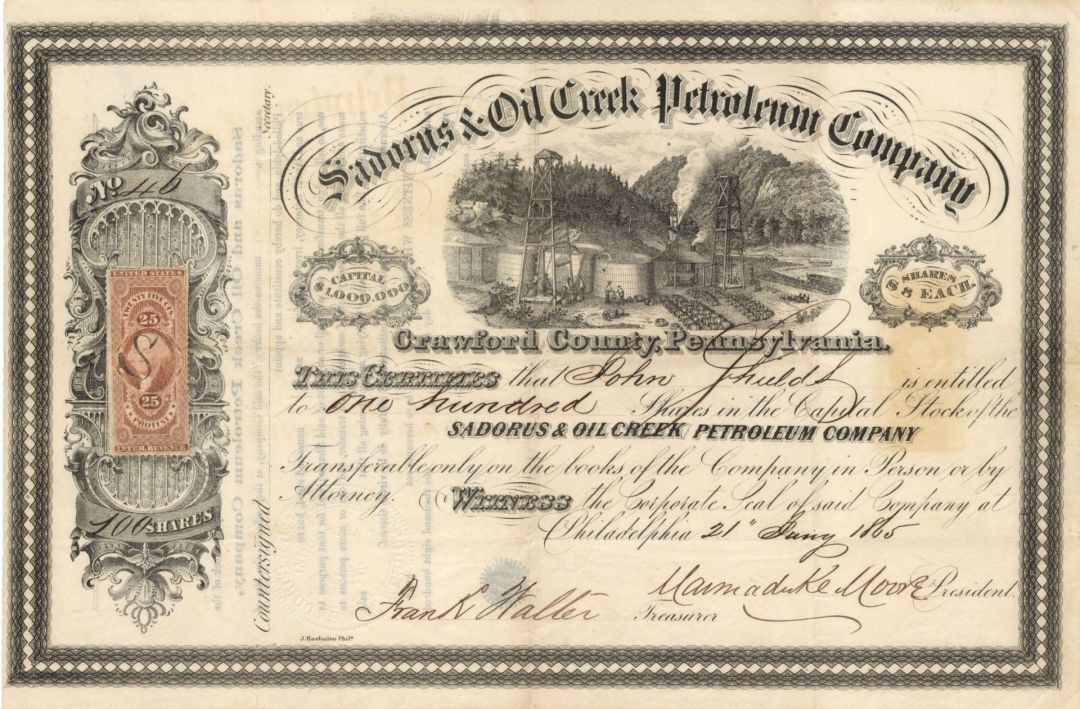 Sadorus & Oil Creek Petroleum Company
No 46
CAPITAL
$1,000,000
SHARES
$8 EACH.
Crawford County, Pennsylvania.
UNITED STATES
TWENTY FIVE CENTS
25
25
PROTEST
INTER. REVENUE
THIS CERTIFIES that John Shields is entitled
to One hundred Shares in the Capital Stock of the
SADORUS & OIL CREEK PETROLEUM COMPANY
Transferable only on the books of the Company in Person or by
Attorney. WITNESS the Corporate Seal of said Company at
Philadelphia 21" Jany 1865
100 SHARES
Countersigned
Secretary.
Marmaduke Moore President.
Frank Walter Treasurer
J. Haehnlen Phila